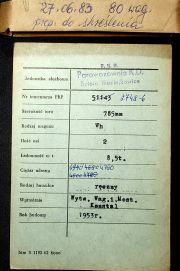 27.06.83 80 wag.
prop. do skreślenia
P.K.P.
Jednostka służbowa Parowozownia Kl.
Nr inwentarza PKP 51143 3748-6
Szerokość toru 785mm
Rodzaj wagonu Wh
Ilość osi 2
Ładowność w t 8,5t.
Ciężar własny
Rodzaj hamulca ręczny
Wytwórnia Wytw. Wag. i Most.
Rok budowy 1953r.